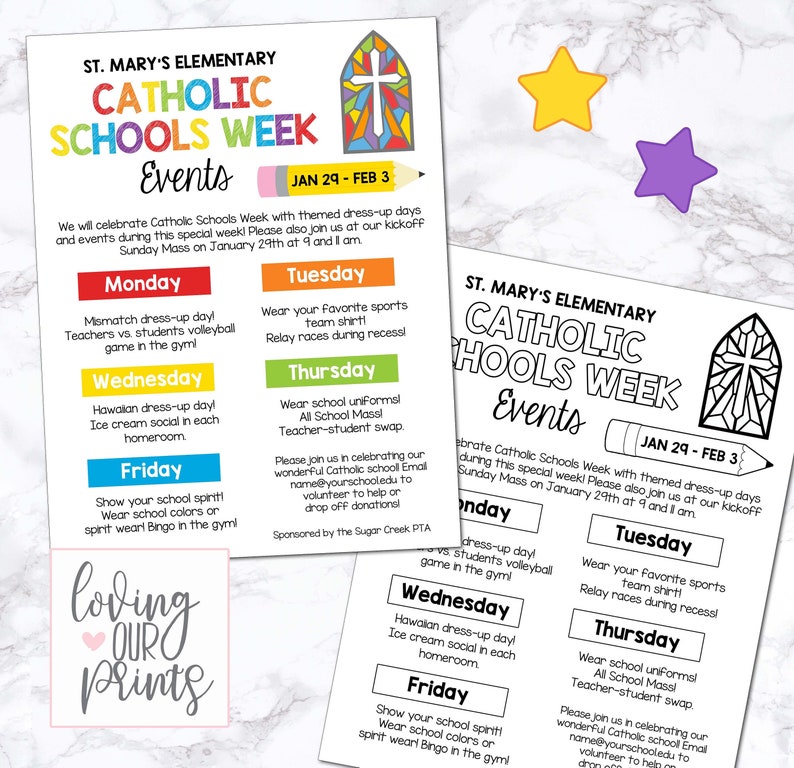 ST. MARY'S ELEMENTARY
CATHOLIC
SCHOOLS WEEK
Events
JAN 29 - FEB 3
We will celebrate Catholic Schools Week with themed dress-up days
and events during this special week! Please also join us at our kickoff
Sunday Mass on January 29th at 9 and 11 am.
Monday
Mismatch dress-up day!
Teachers vs. students volleyball
game in the gym!
Tuesday
Wear your favorite sports
team shirt!
Relay races during recess!
Wednesday
Hawaiian dress-up day!
Ice cream social in each
homeroom.
Thursday
Wear school uniforms!
All School Mass!
Teacher-student swap.
Friday
Show your school spirit!
Wear school colors or
spirit wear! Bingo in the gym!
Please join us in celebrating our
wonderful Catholic school! Email
name@yourschool.edu to
volunteer to help or
drop off donations!
Sponsored by the Sugar Creek PTA
loving
OUR
prints
ST. MARY'S ELEMENTARY
CATHOLIC
CHOOLS WEEK
Events
JAN 29 - FEB 3
Catholic Schools Week with themed dress-up days
during this special week! Please also join us at our kickoff
Sunday Mass on January 29th at 9 and 11 am.
onday
dress-up day!
vs. students volleyball
game in the gym!
Tuesday
Wear your favorite sports
team shirt!
Relay races during recess!
Wednesday
Hawaiian dress-up day!
Ice cream social in each
homeroom.
Thursday
Wear school uniforms!
All School Mass!
Teacher-student swap.
Friday
Show your school spirit!
Wear school colors or
spirit wear! Bingo in the gym!
Please join us in celebrating our
wonderful Catholic school! Email
name@yourschool.edu to
volunteer to help or
drop off donations!